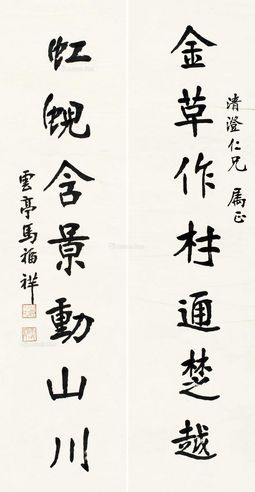 金草作材通楚越
清澄仁兄 属正
虹蜺含景動山川
雲亭馬福祥